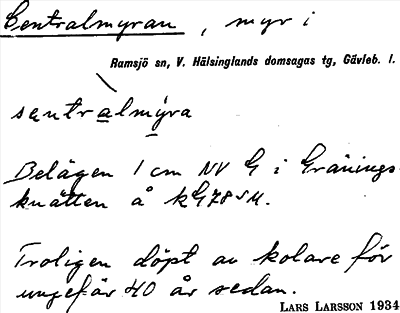 Centralmyran, myr i
Ramsjö sn, V. Hälsinglands domsagas tg, Gävleb. l.
sentralmýra
Belägen 1 cm NV G i Gränings-
knätten å kG78SM.
Troligen döpt av kolare för
ungefär 40 år sedan.
LARS LARSSON 1934